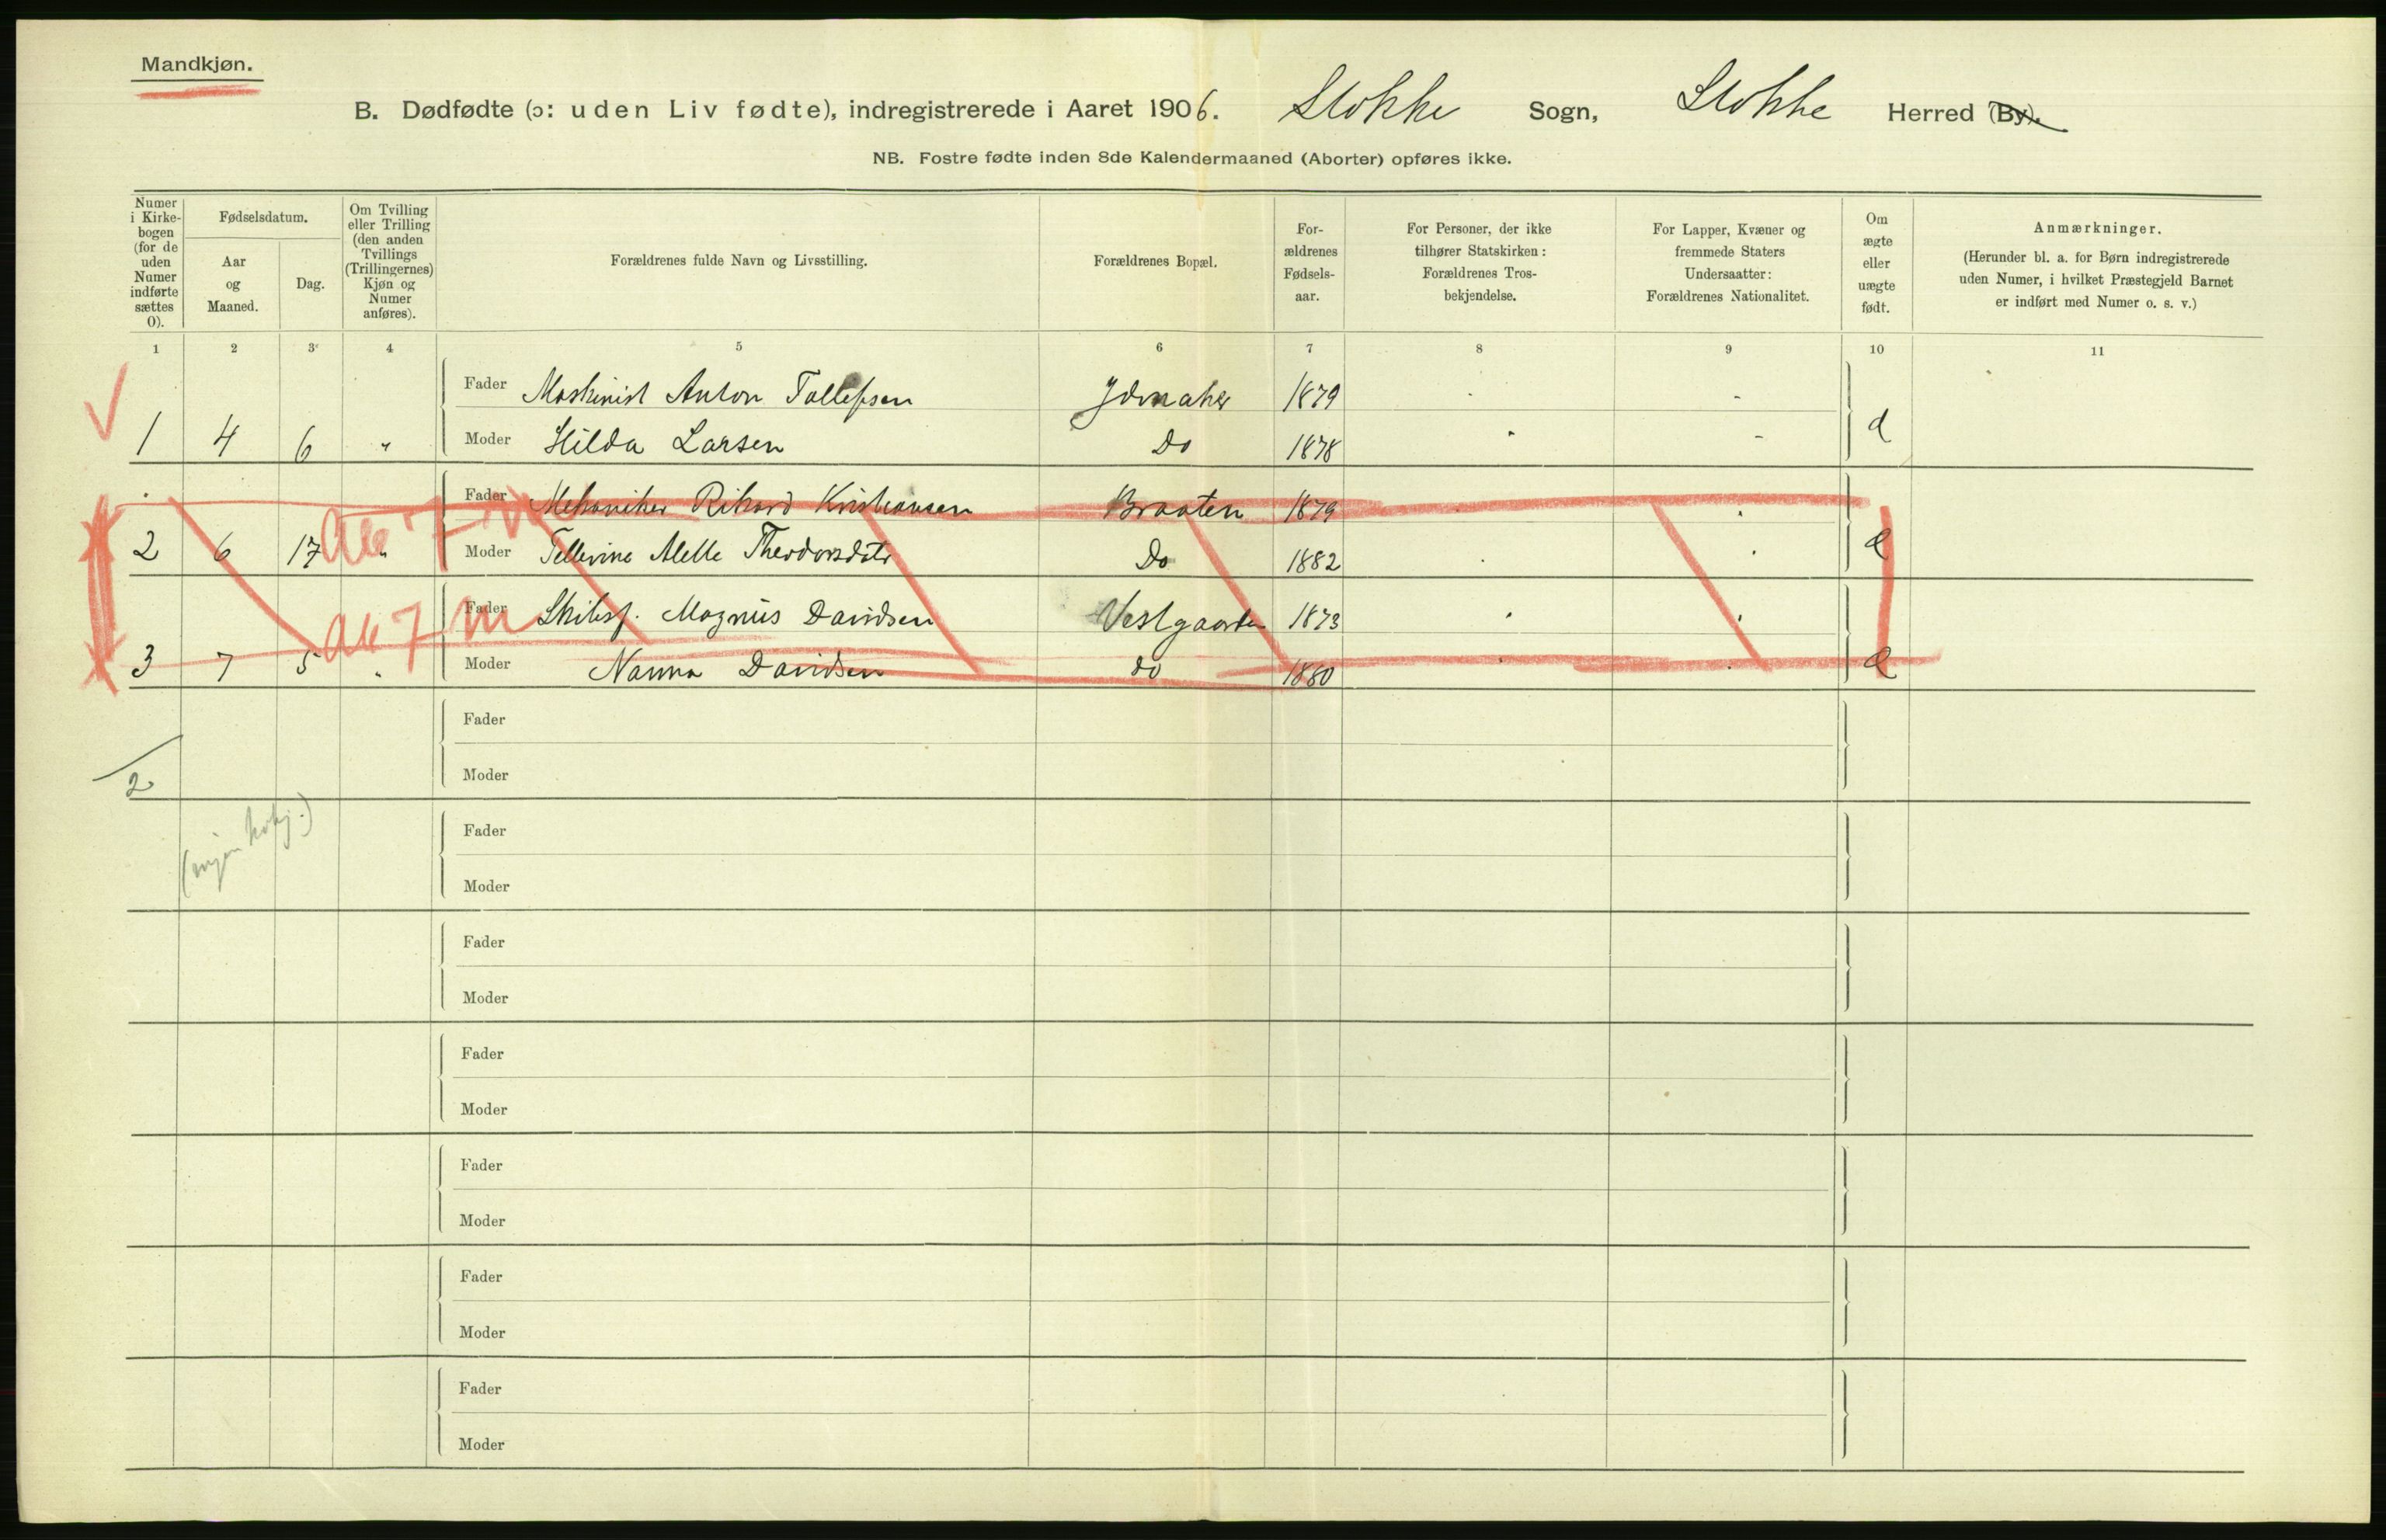 Mandkjøn.
B. Dødfødte (ɔ: uden Liv fødte), indregistrerede i Aaret 1906. Stokke Sogn, Stokke Herred (By).
NB. Fostre fødte inden 8de Kalendermaaned (Aborter) opføres ikke.
Numer i Kirkebogen (for de uden Numer indførte sættes 0).
Fødselsdatum.
Aar og Maaned.
Dag.
Om Tvilling eller Trilling (den anden Tvillings (Trillingernes) Kjøn og Numer anføres).
Forældrenes fulde Navn og Livsstilling.
Forældrenes Bopæl.
For-ældrenes Fødsels-aar.
For Personer, der ikke tilhører Statskirken: Forældrenes Tros-bekjendelse.
For Lapper, Kvæner og fremmede Staters Undersaatter: Forældrenes Nationalitet.
Om ægte eller uægte født.
Anmærkninger. (Herunder bl. a. for Børn indregistrerede uden Numer, i hvilket Præstegjeld Barnet er indført med Numer o. s. v.)
1 2 3 4 5 6 7 8 9 10 11
Fader Maskinist Anton Tollefsen 1879
1 4 6 " Moder Hilda Larsen Do 1878
Fader Mekaniker Rikard Kristiansen Braaten 1879
2 6 17 " Moder Theodorsdatr Do 1882
Fader Skibsf. Magnus Davidsen Vestgaarden 1873
3 7 5 " Moder Nanna Davidsen do 1880
Fader
Moder
2
Fader
Moder
Fader
Moder
Fader
Moder
Fader
Moder
Fader
Moder
Fader
Moder